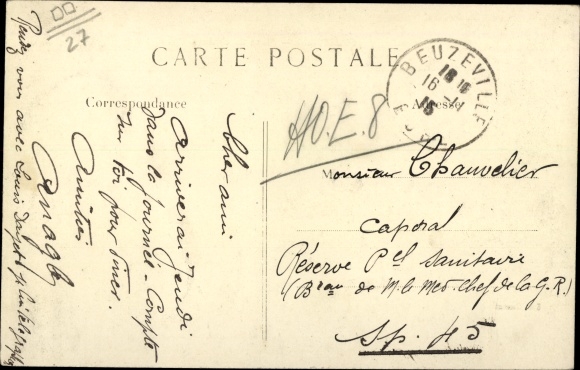 27
CARTE POSTALE
Correspondance
Adresse
BEUZEVILLE
16
HO.E.8
Cher ami
arriverai jeudi
dans la journée. Compte
sur toi pour diner.
Amitiés
Rendez vous avec Louis
Monsieur Chauvelier
caporal
Réserve Pel sanitaire
(Bau de M. le Med. chef de la G.R.)
Sp. 45